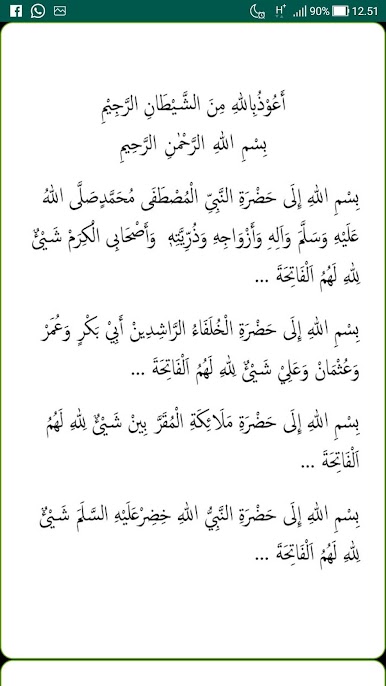 90% 12.51
أَعُوْذُبِاللهِ مِنَ الشَّيْطَانِ الرَّجِيْمِ
بِسْمِ اللهِ الرَّحْمٰنِ الرَّحِيمِ
بِسْمِ اللهِ إِلَى حَضْرَةِ النَّبِيِّ الْمُصْطَفَى مُحَمَّدٍصَلَّى اللهُ
عَلَيْهِ وَسَلَّمَ وَآلِهِ وَأَزْوَاجِهِ وَذُرِّيَّتِهِ وَأَصْحَابِى الْكِرِمْ شَيْئٌ
لِلهِ لَهُمُ اَلْفَاتِحَةَ ...
بِسْمِ اللهِ إِلَى حَضْرَةِ الْخُلَفَاءُ الرَّاشِدِينْ أَبِيْ بَكْرٍ وَعُمَرْ
وَعُثْمَانْ وَعَلِيْ شَيْئٌ لِلهِ لَهُمُ اَلْفَاتِحَةَ ...
بِسْمِ اللهِ إِلَى حَضْرَةِ مَلَائِكَةِ الْمُقَرَّ بِينْ شَيْئٌ لِلهِ لَهُمُ
اَلْفَاتِحَةَ ...
بِسْمِ اللهِ إِلَى حَضْرَةِ النَّبِيُّ اللهِ خِضِرْعَلَيْهِ السَّلَمَ شَيْئٌ
لِلهِ لَهُمُ اَلْفَاتِحَةَ ...